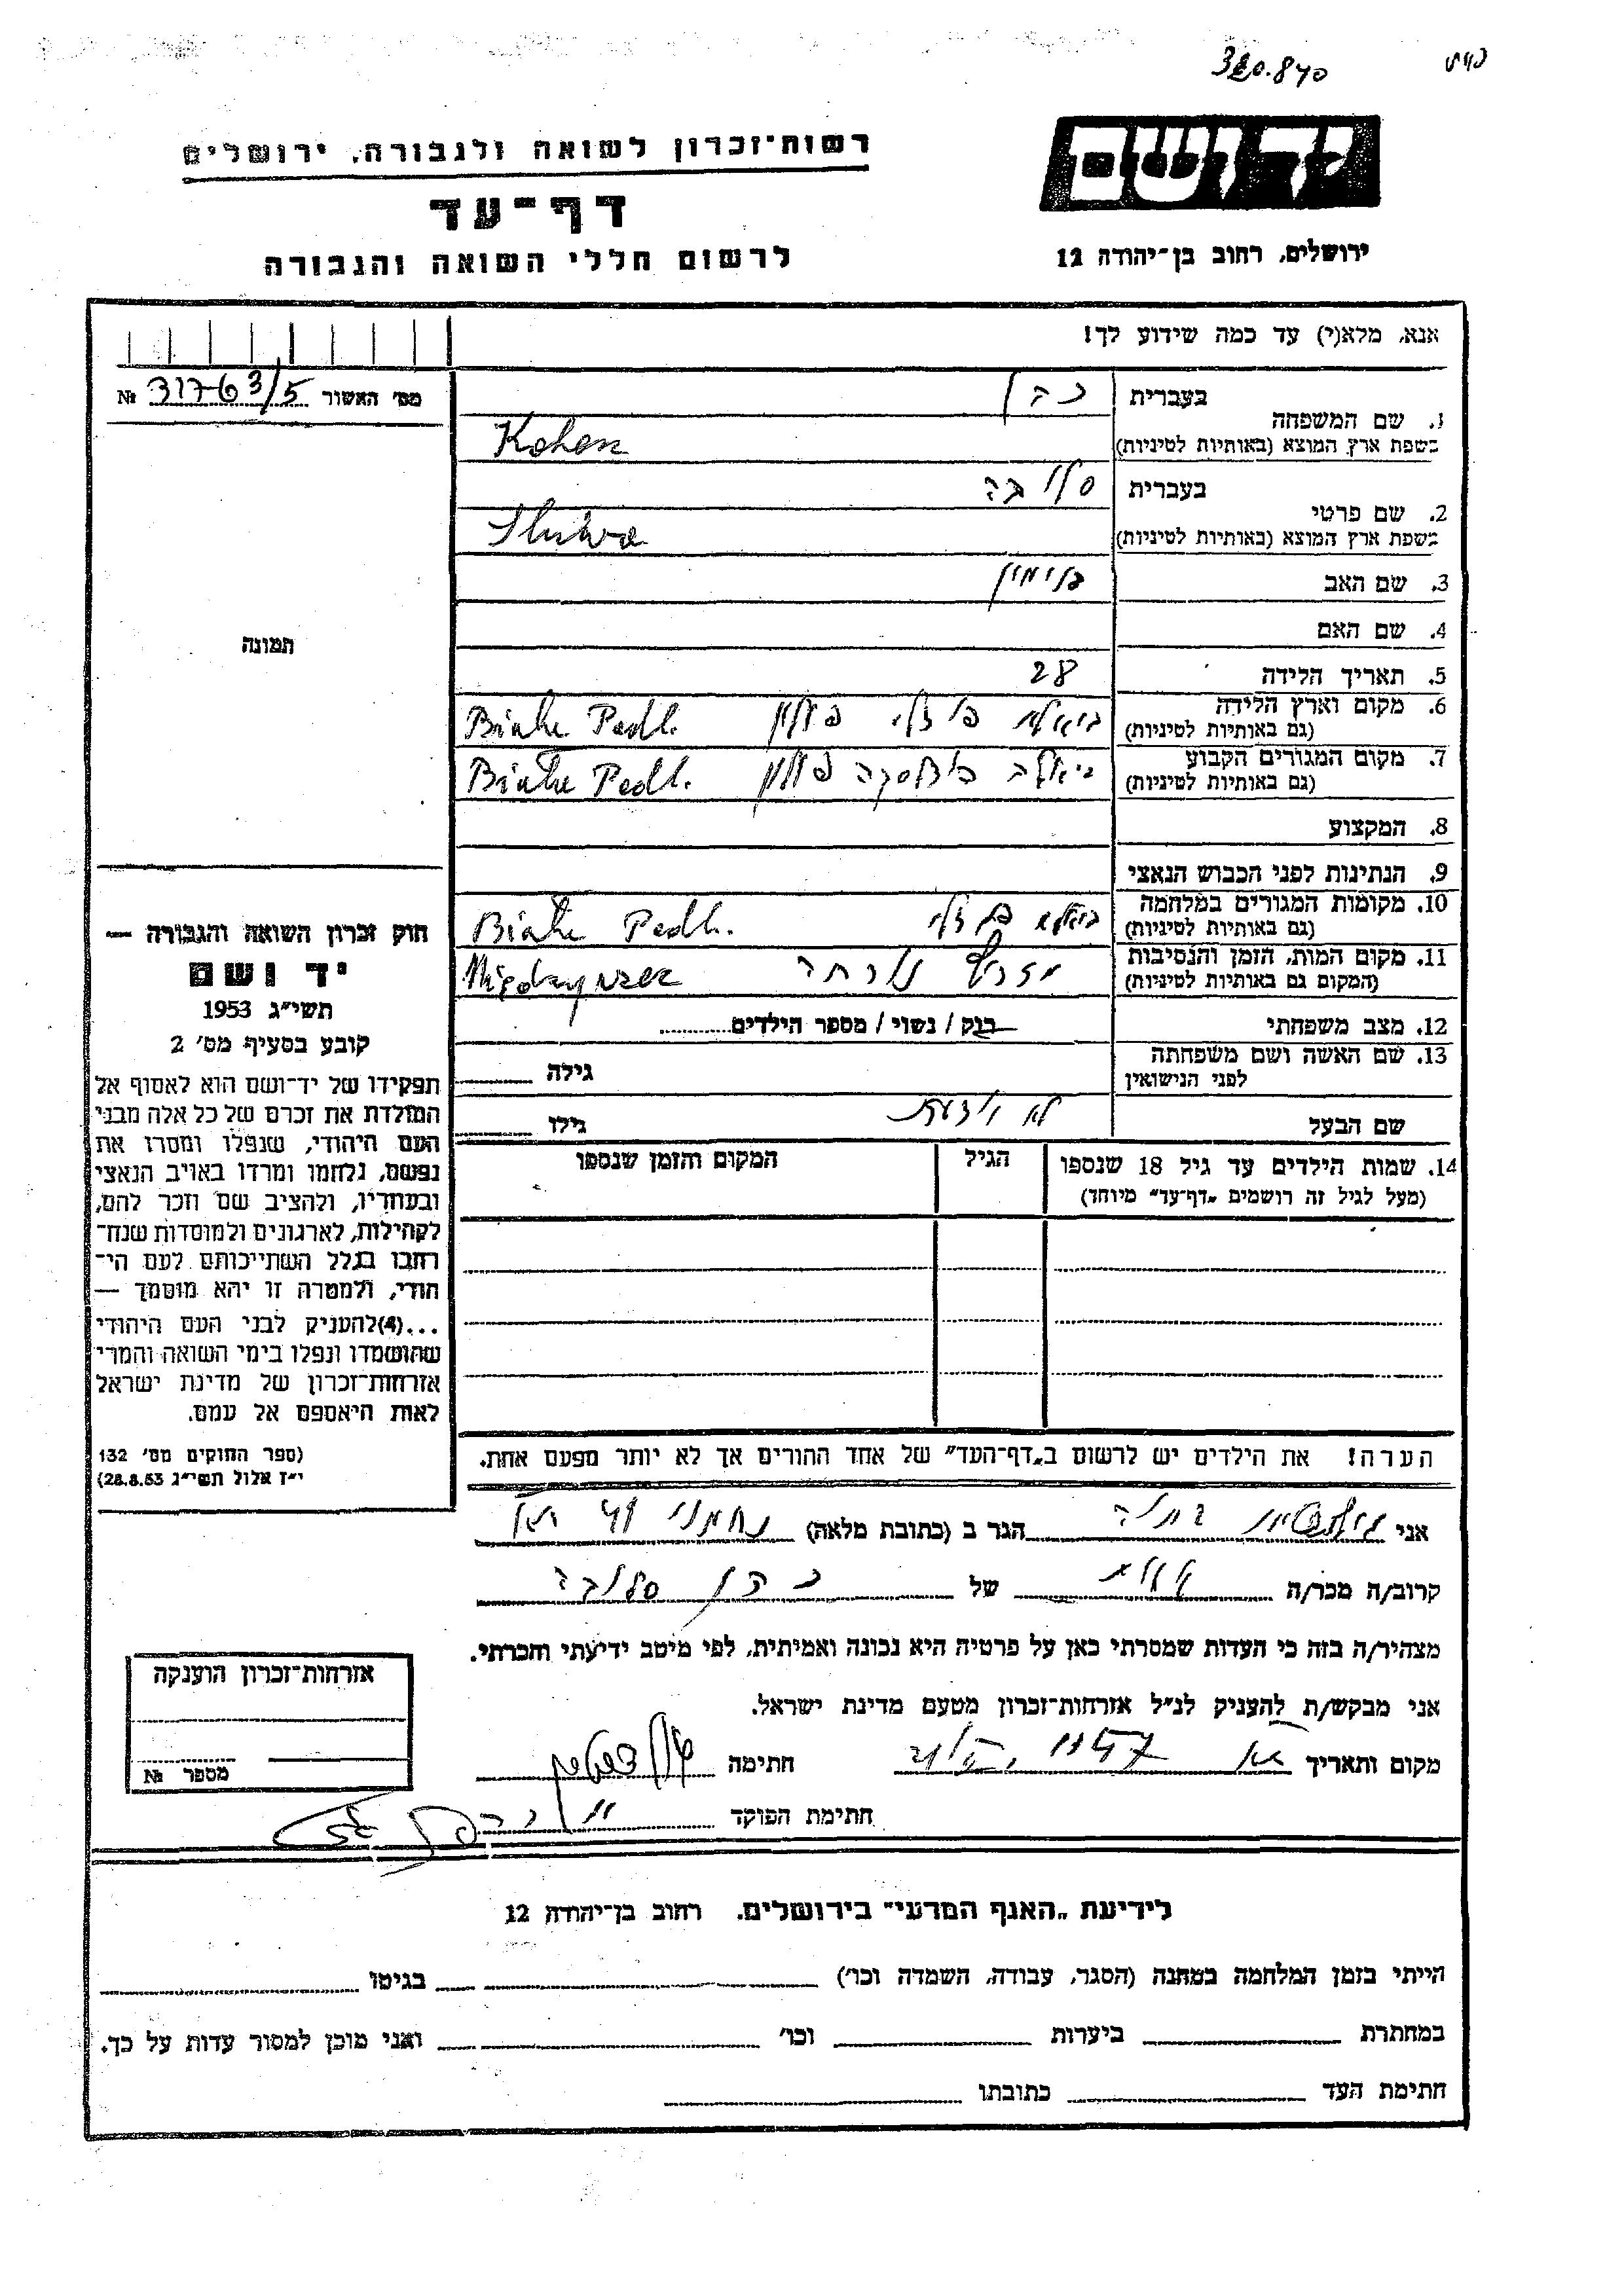 320.840
יד ושם
רשות־זכרון לשואה ולגבורה, ירושלים
דף־עד
ירושלים, רחוב בן־יהודה 12
לרשום חללי השואה והגבורה
אנא, מלא(י) עד כמה שידוע לך!
מס' האשור № 31763/5
תמונה
1. שם המשפחה
בעברית כהן
בשפת ארץ המוצא (באותיות לטיניות) Kohen
2. שם פרטי
בעברית סליבה
בשפת ארץ המוצא (באותיות לטיניות) Sliwa
3. שם האב בנימין
4. שם האם
5. תאריך הלידה 28
6. מקום וארץ הלידה
(גם באותיות לטיניות) פולין Biala Podl.
7. מקום המגורים הקבוע
(גם באותיות לטיניות) ביאלה פודלסקה פולין Biala Podl.
8. המקצוע
9. הנתינות לפני הכבוש הנאצי
10. מקומות המגורים במלחמה
(גם באותיות לטיניות) Biala Podl.
11. מקום המות, הזמן והנסיבות
(המקום גם באותיות לטיניות) Międzyrzec
12. מצב משפחתי רוק / נשוי / מספר הילדים
13. שם האשה ושם משפחתה
לפני הנישואין גילה
שם הבעל לא גילו
14. שמות הילדים עד גיל 18 שנספו הגיל המקום והזמן שנספו
(מעל לגיל זה רושמים „דף־עד" מיוחד)
חוק זכרון השואה והגבורה —
יד ושם
תשי״ג 1953
קובע בסעיף מס' 2
תפקידו של יד־ושם הוא לאסוף אל
המולדת את זכרם של כל אלה מבני
העם היהודי, שנפלו ומסרו את
נפשם, נלחמו ומרדו באויב הנאצי
ובעוזריו, ולהציב שם וזכר להם,
לקהילות, לארגונים ולמוסדות שנח־
רבו בגלל השתייכותם לעם הי־
הודי, ולמטרה זו יהא מוסמך —
...(4) להעניק לבני העם היהודי
שהושמדו ונפלו בימי השואה והמרי
אזרחות־זכרון של מדינת ישראל
לאות היאספם אל עמם.
(ספר החוקים מס' 132
י״ז אלול תשי״ג 28.8.53)
הערה! את הילדים יש לרשום ב„דף־העד" של אחד ההורים אך לא יותר מפעם אחת.
אני הגר ב (כתובת מלאה) נחמני
קרוב/ה מכר/ה של כהן סליבה
מצהיר/ה בזה כי העדות שמסרתי כאן על פרטיה היא נכונה ואמיתית, לפי מיטב ידיעתי והכרתי.
אני מבקש/ת להעניק לנ״ל אזרחות־זכרון מטעם מדינת ישראל.
מקום ותאריך חתימה
חתימת הפוקד
אזרחות־זכרון הוענקה
מספר №
לידיעת „האגף המדעי" בירושלים, רחוב בן־יהודה 12
הייתי בזמן המלחמה במחנה (הסגר, עבודה, השמדה וכו') בגיטו
במחתרת ביערות וכו' ואני מוכן למסור עדות על כך.
חתימת העד כתובתו